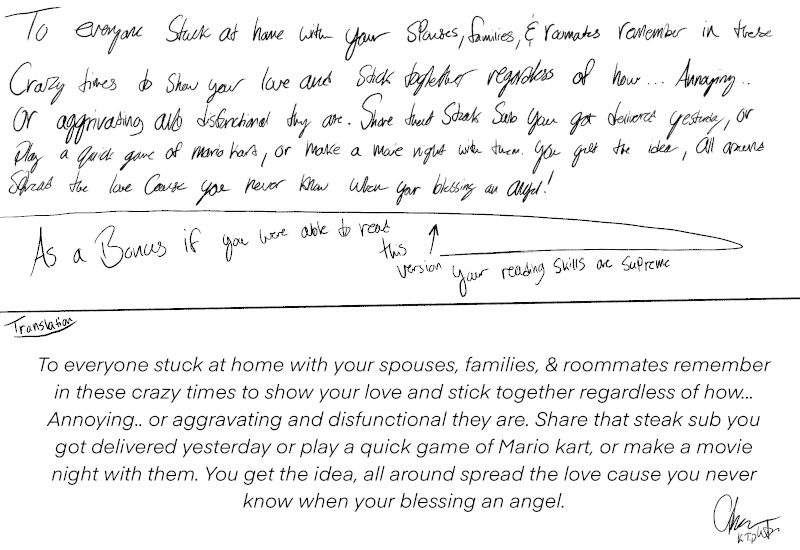 To everyone stuck at home with your spouses, families, & roomates remember in these
Crazy times to show your love and stick together regardless of how... Annoying..
Or aggrivating and disfunctional they are. Share that Steak Sub you got delivered yesterday, or
Play a quick game of mario kart, or make a movie night with them. You get the idea, all around
Spread the love Cause you never know when your blessing an angel!
As a Bonus if you were able to read
this
version ↑ Your reading skills are supreme
Translation
To everyone stuck at home with your spouses, families, & roommates remember
in these crazy times to show your love and stick together regardless of how...
Annoying.. or aggravating and disfunctional they are. Share that steak sub you
got delivered yesterday or play a quick game of Mario kart, or make a movie
night with them. You get the idea, all around spread the love cause you never
know when your blessing an angel.